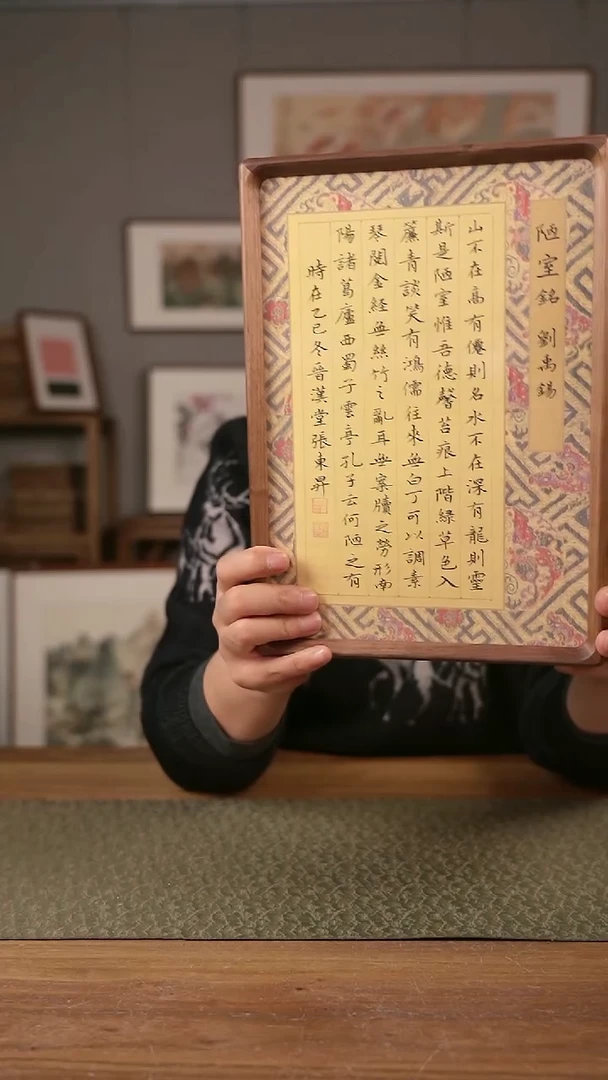 陋室銘 劉禹錫
山不在高有僊則名水不在深有龍則靈
斯是陋室惟吾德馨苔痕上階綠草色入
簾青談笑有鴻儒往來無白丁可以調素
琴閱金經無絲竹之亂耳無案牘之勞形南
陽諸葛廬西蜀子雲亭孔子云何陋之有
時在乙巳冬晉漢堂張東昇